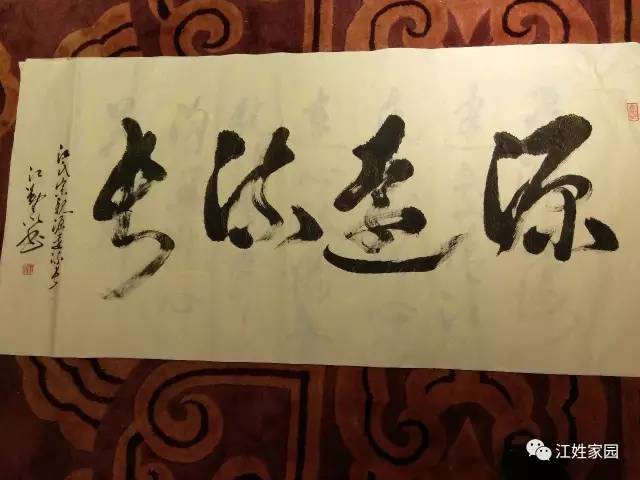 源远流长
江氏宗亲源远流长
江
江姓家园